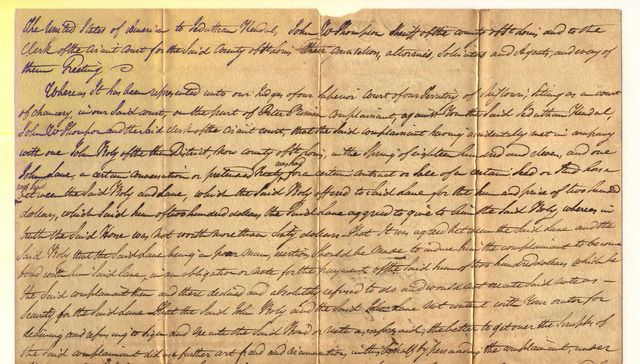 The United States of America to Jeduthan Kendal, John W Thompson Sheriff of the county of St Louis and to the
Clerk of the Circuit Court for the Said County of St Louis their Counsellors, attornies, Solicitors and Agents, and every of
them Greeting
Whereas It has been represented unto our Judges of our Superior Court of our Territory of Missouri, Sitting as a court
of chancery, in our Said court, on the part of Peter Complainant, against You the Said Jeduthan Kendal,
John W Thompson and the Said clerk of the Circuit court, that the Said complainant having accidentally met in company
with one John Woly of the then District, now county of St Louis, in the Spring of eighteen hundred and eleven, and one
John Lane, a certain conversation or pretence Treaty was had for a certain contract or Sale of a certain horse
between the Said Woly and Lane, which the Said Woly offered to Said Lane for the Sum and price of two hundred
dollars, which Said Sum of two hundred dollars the Said Lane agreed to give to him the Said Woly, whereas in
truth the Said Horse was not worth more than Sixty dollars That it was agreed between the Said Lane and the
Said Woly that the Said Lane being a poor Man, mention Should be Made to induce him the complainant to become
bound with him Said Lane, in an obligation or Note for the payment of the Said Sum of two hundred dollars which he
the Said complainant then and there declined and absolutely refused to do and would not execute Said note as
Security for the Said Lane That the Said John Woly and the Said John Lane Not content with Your orator for
declining and refusing to Sign and execute the Said Bond or Note as aforesaid; the better to get over the Scruples of
the Said complainant did use further art fraud and circumvention, in this behalf by persuading the complainant, under